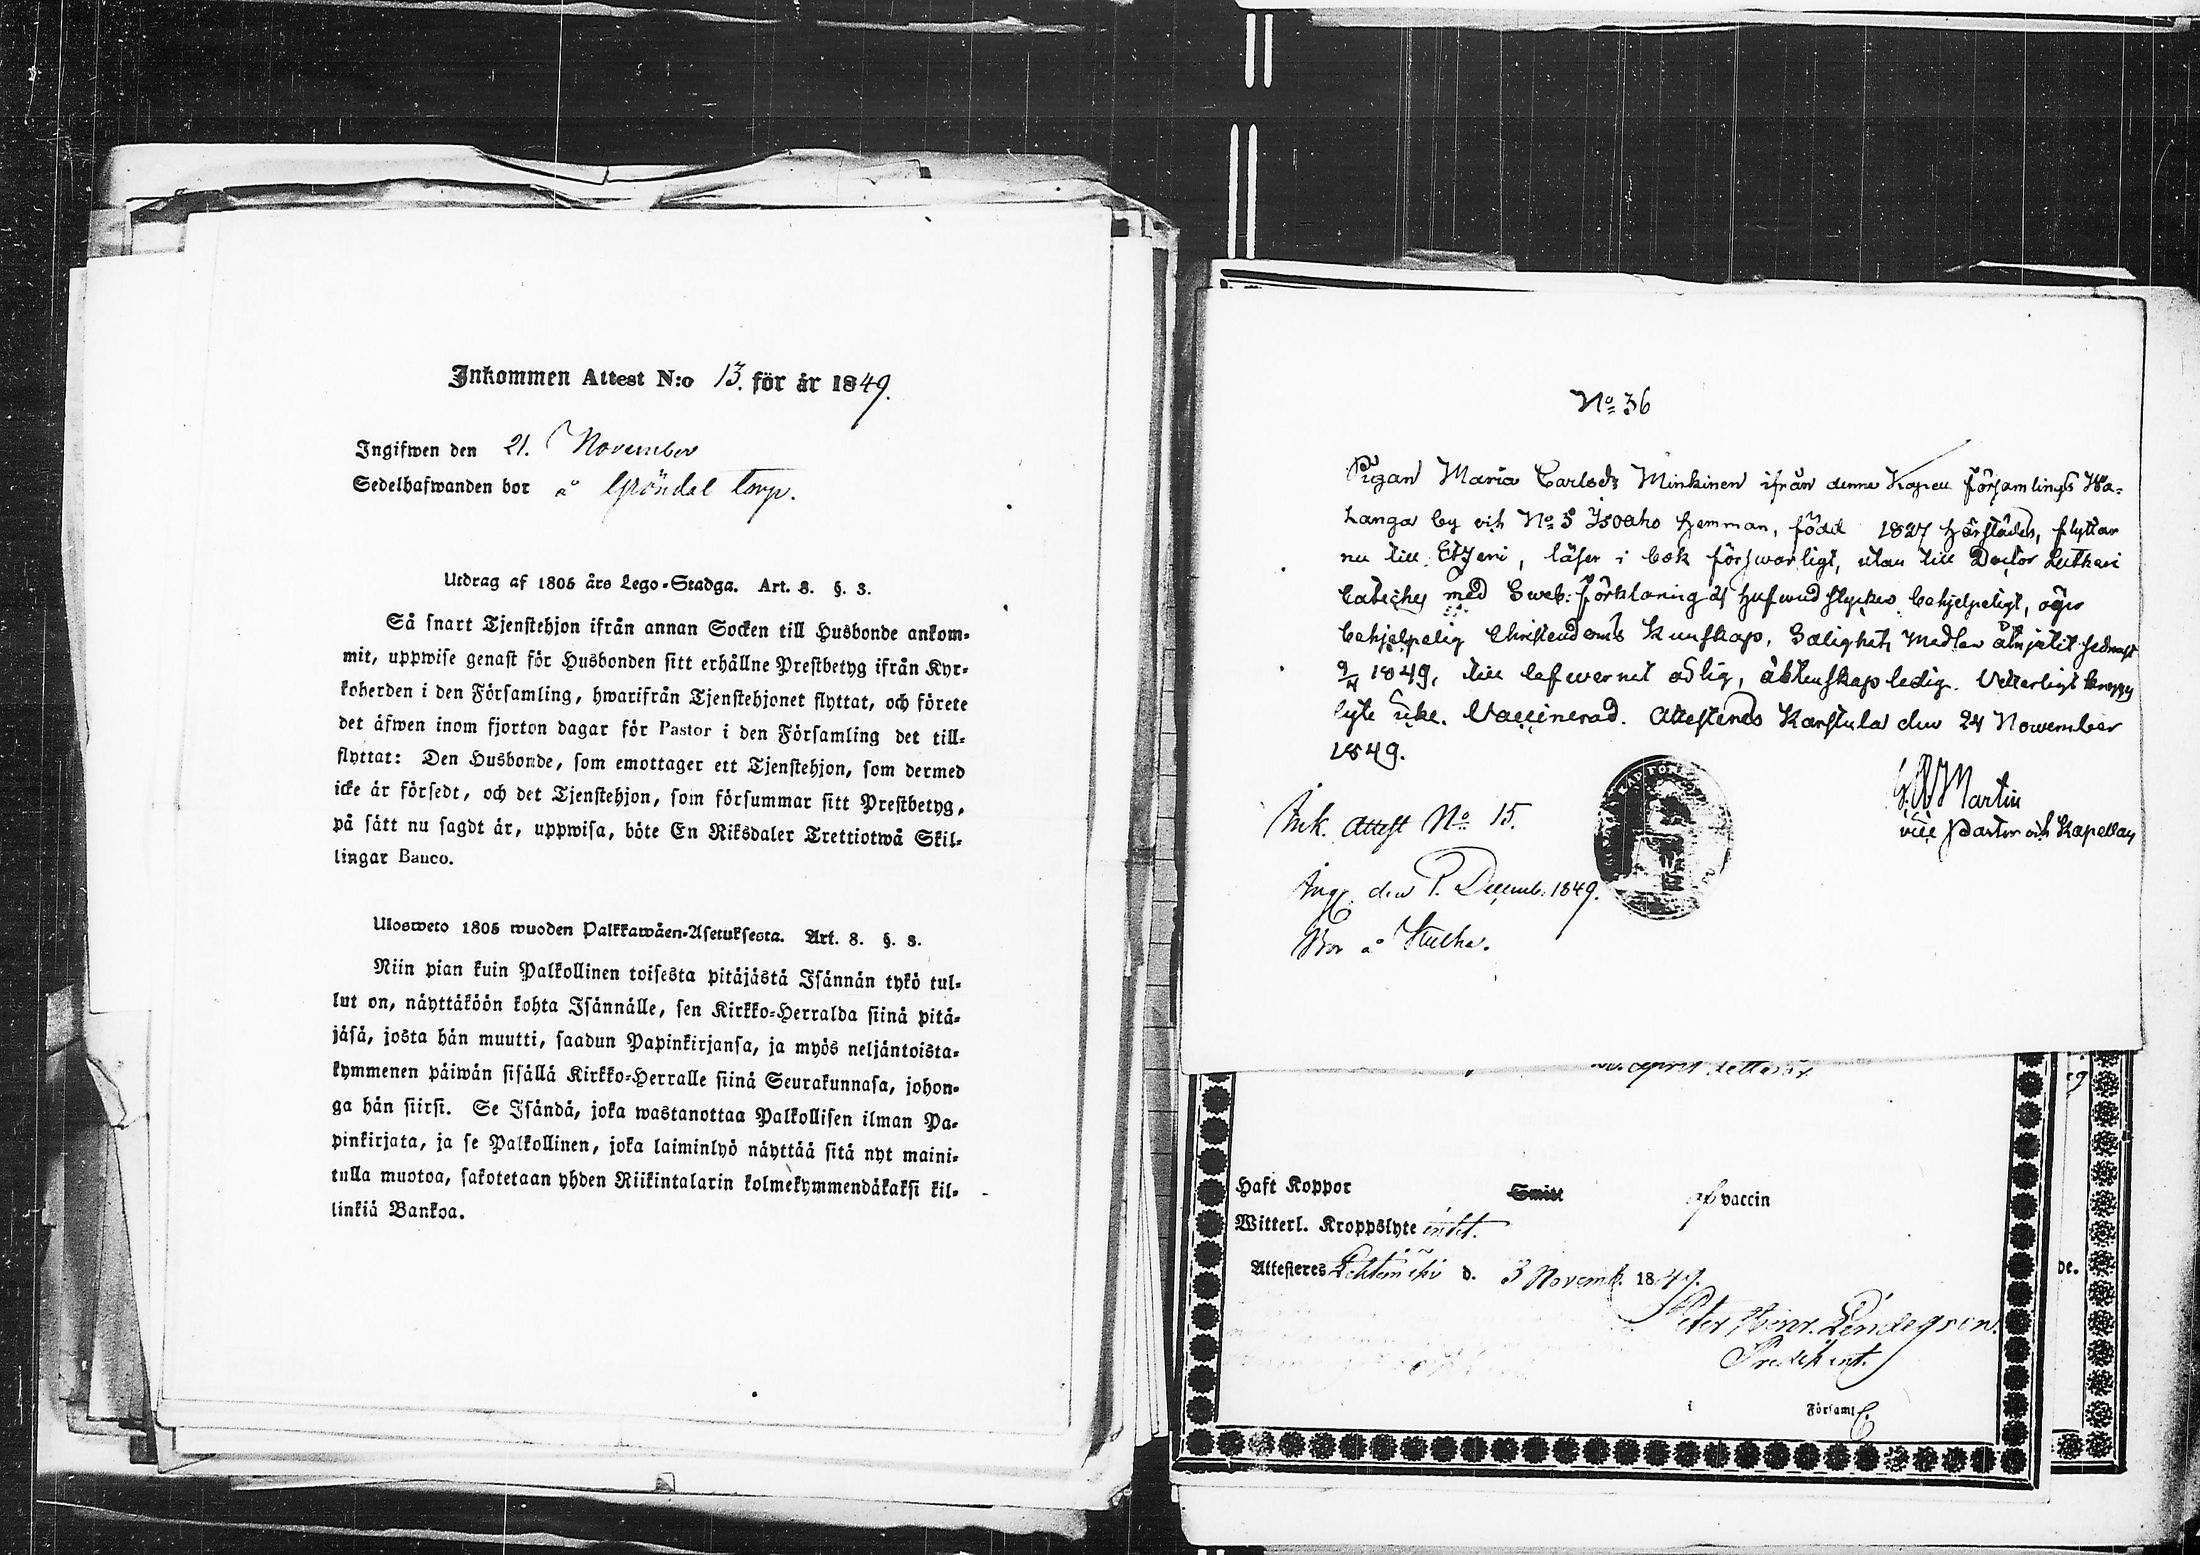 Inkommen Attest N:o 13. för år 1849.
Ingifwen den 21. November
Sedelhafwanden bor å Gröndal torp.
Utdrag af 1805 års Lego-Stadga. Art. 8. §. 3.
Så snart Tjenstehjon ifrån annan Socken till Husbonde ankom-
mit, uppwise genast för Husbonden sitt erhållne Prestbetyg ifrån Kyr-
koherden i den Församling, hwarifrån Tjenstehjonet flyttat, och förete
det äfwen inom fjorton dagar för Pastor i den Församling det till-
flyttat: Den Husbonde, som emottager ett Tjenstehjon, som dermed
icke är försedt, och det Tjenstehjon, som försummar sitt Prestbetyg,
på sätt nu sagdt är, uppwisa, böte En Riksdaler Trettiotwå Skil-
lingar Banco.
Ulosweto 1805 wuoden Palkkawäen-Asetuksesta. Art. 8. §. 3.
Niin pian kuin Palkollinen toisesta pitäjästä Isännän tykö tul-
lut on, näyttäköön kohta Isännälle, sen Kirkko-Herralda siinä pitä-
jäsä, josta hän muutti, saadun Papinkirjansa, ja myös neljäntoista-
kymmenen päiwän sisällä Kirkko-Herralle siinä Seurakunnasa, johon-
ga hän siirsi. Se Isändä, joka wastanottaa Palkollisen ilman Pa-
pinkirjata, ja se Palkollinen, joka laiminlyö näyttää sitä nyt maini-
tulla muotoa, sakotetaan yhden Riikintalarin kolmekymmendäkaksi kil-
linkiä Bankoa.
No 36
Pigan Maria Carlsdr Minkinen ifrån denna Kapell Församlings Wa-
hanga by och No 5 Isoaho hemman, född 1827 härstädes, flyttar
nu till Etzeri, läser i bok förswarligt, utan till Doctor Lutheri
Cateches med Sweb: förklaring af hufwudstycken behjelpeligt, äger
behjelpelig Christendoms Kunskap, Salighets Medlen åtnjutit sednast
1849, till lefwernet ärlig, äktenskap ledig. Vetterligt kropps
lyte icke. Vaccinerad. Attesteras Karstula den 24 November
1849.
Martin
vice Pastor och Kapellan
Ink. Attest No 15.
Ing. den 1. Decemb. 1849.
Bor å
april
Haft Koppor Smitt af vaccin
Witterl. Kroppslyte intet.
Attesteres d. 3 Novemb. 1849.
Peter Henr.
Predikant.
i Församl